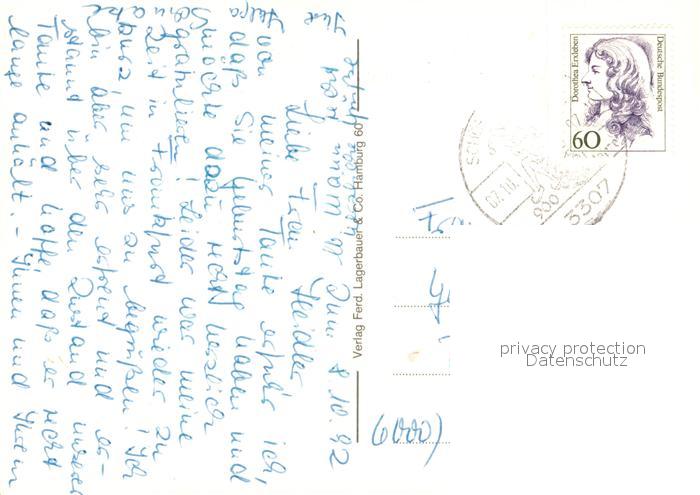 Zum 8.10.92
Liebe Frau Heidler,
von meiner Tante erfuhr ich,
daß Sie Geburtstag haben und
möchte dazu recht herzlich
gratulieren! Leider war meine
Zeit in Frankfurt wieder zu
kurz, um uns zu begrüßen. Ich
bin aber sehr erfreut und er-
staunt über den Zustand unserer
Tante und hoffe daß er recht
lange anhält. – Ihnen und Ihrem
Verlag Ferd. Lagerbauer & Co. Hamburg 60
(6000)
Dorothea Erxleben
Deutsche Bundespost
60
3307
privacy protection
Datenschutz